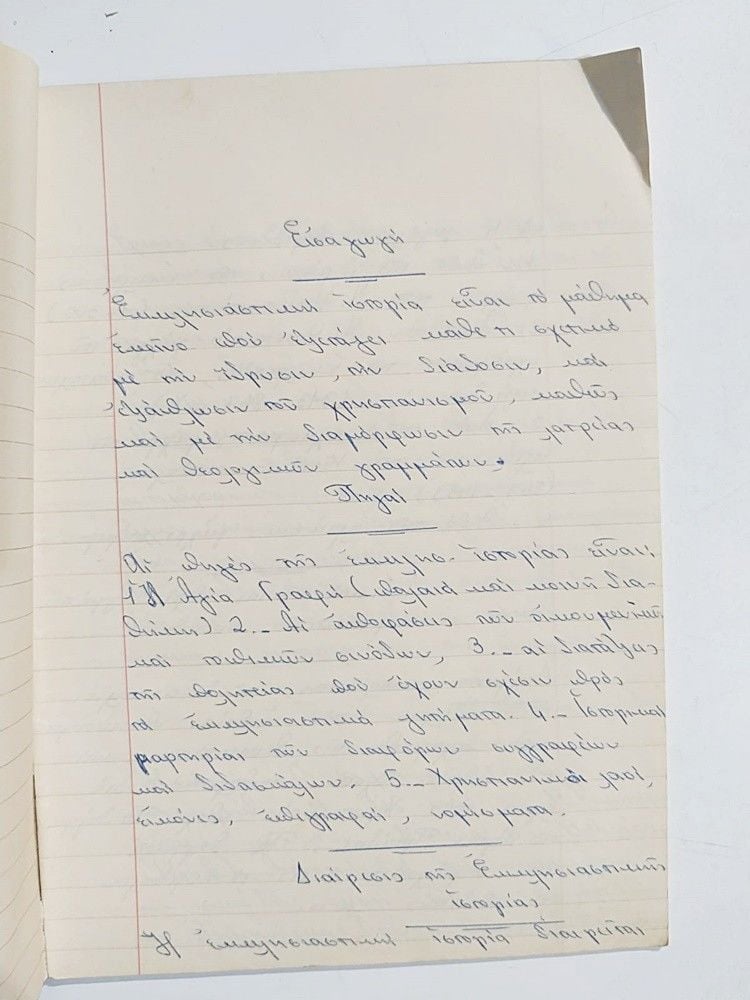 Εἰσαγωγή
Ἐκκλησιαστική ἱστορία εἶναι τό μάθημα
ἐκεῖνο πού ἐξετάζει κάθε τι σχετικό
μέ τήν ἵδρυσιν, τήν διάδοσιν, καί
ἐξάπλωσιν τοῦ χριστιανισμοῦ, καθώς
καί μέ τήν διαμόρφωσιν τῆς λατρείας
καί θεολογικῶν γραμμάτων.
Πηγαί
Αἱ πηγές τῆς ἐκκλησ. ἱστορίας εἶναι:
1 Ἡ Ἁγία Γραφή (παλαιά καί καινή δια-
θήκη) 2.- Αἱ ἀποφάσεις τῶν οἰκουμενικῶν
καί τοπικῶν συνόδων, 3.- αἱ διατάξεις
τῆς πολιτείας πού ἔχουν σχέσιν πρός
τά ἐκκλησιαστικά ζητήματα. 4.- Ἱστορικαί
μαρτυρίαι τῶν διαφόρων συγγραφέων
καί διδασκάλων. 5.- Χριστιανικοί ναοί,
εἰκόνες, ἐπιγραφαί, νομίσματα.
Διαίρεσις τῆς Ἐκκλησιαστικῆς
ἱστορίας
Ἡ ἐκκλησιαστική ἱστορία διαιρεῖται